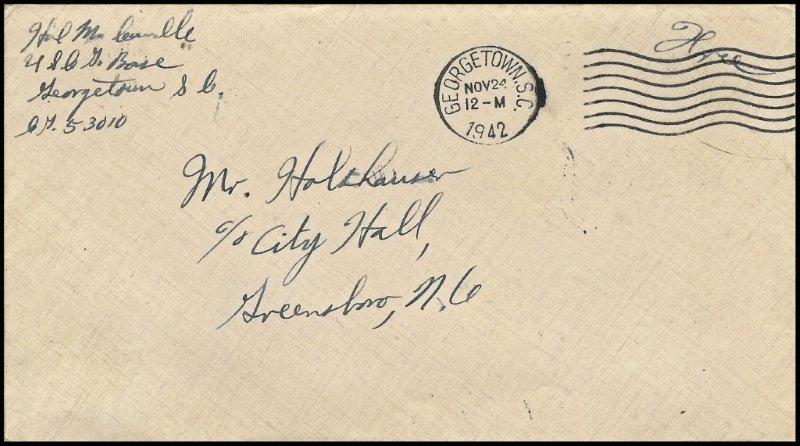 U S C G Base
Georgetown S C.
CG. 53010
GEORGETOWN, S.C.
NOV 24
12-M
1942
Free
Mr. Holshauser
c/o City Hall,
Greensboro, N.C